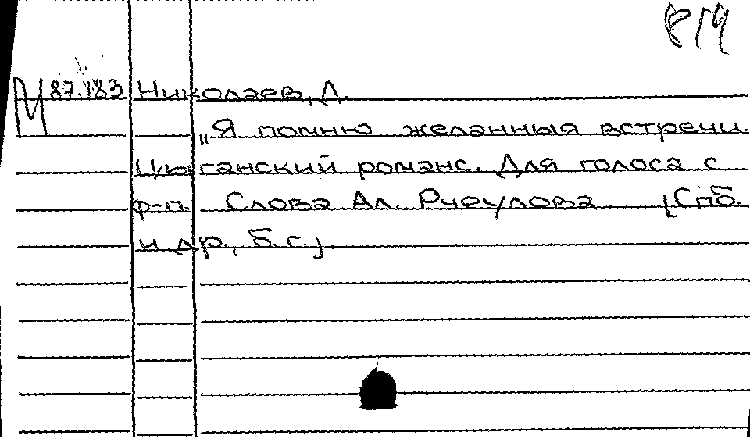 819
М 87.183 Николаев, Д.
„Я помню желанныя встречи.
Цыганский романс. Для голоса с
ф-п. Слова Ал.
[Спб.
и др., б.г.]